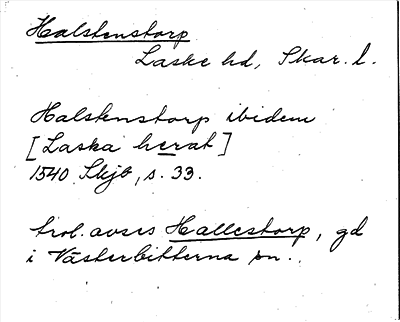 Halstenstorp
Laske hd, Skar. l.
Halstenstorp ibidem
[Laska herat]
1540 Skjb, s. 33.
trol. avses Hallestorp, gd
i Västerbitterna sn..